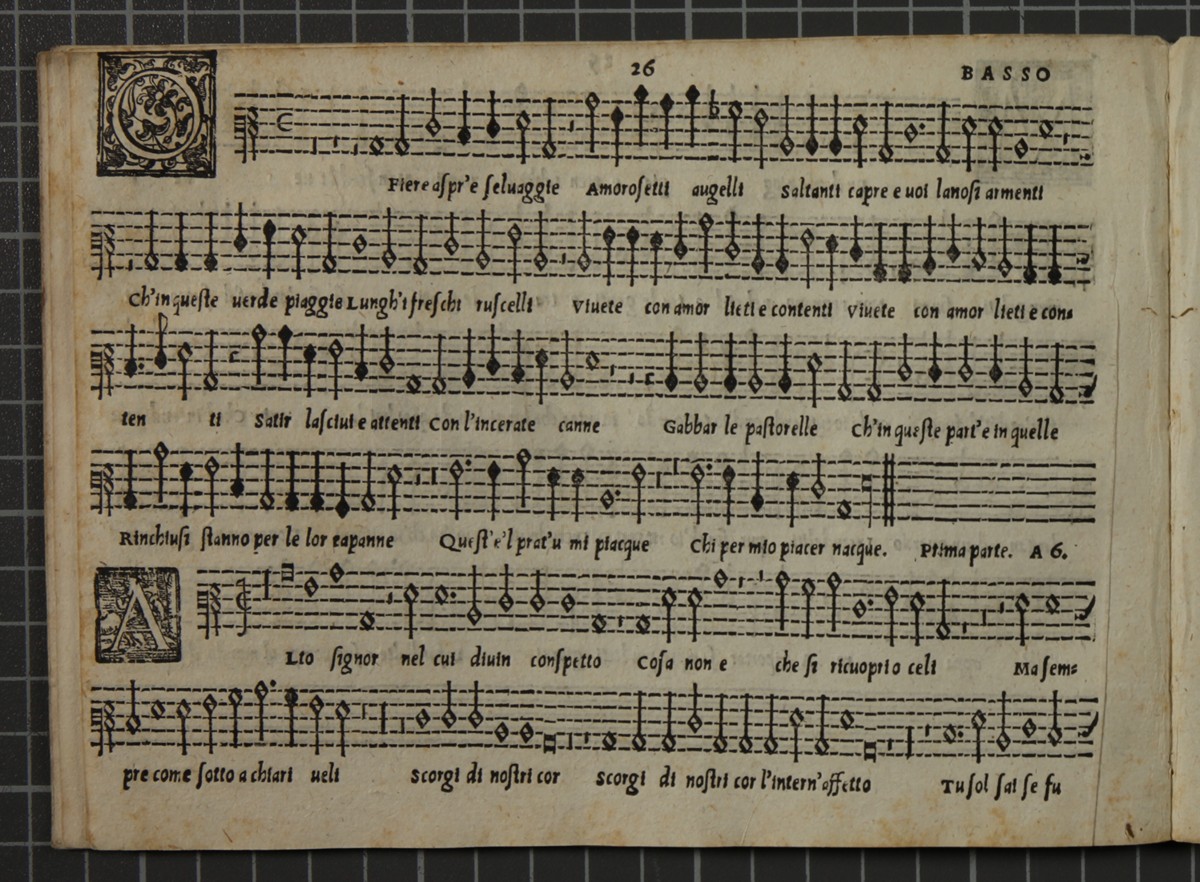 26 BASSO
O Fiere aſpr'e ſeluaggie Amoroſetti augelli Saltanti capre e uoi lanoſi armenti
Ch'in queſte uerde piaggie Lungh'i freſchi ruſcelli Viuete con amor lieti e contenti Viuete con amor lieti e con=
ten ti Satir laſciui e attenti Con l'incerate canne Gabbar le paſtorelle Ch'in queſte part'e in quelle
Rinchiuſi ſtanno per le lor capanne Queſt'e'l prat'u mi piacque Chi per mio piacer nacque. Prima parte. A 6.
A Lto ſignor nel cui diuin conſpetto Coſa non e che ſi ricuopri o celi Ma ſem=
pre come ſotto a chiari ueli Scorgi di noſtri cor Scorgi di noſtri cor l'intern'affetto Tu ſol ſai ſe fu